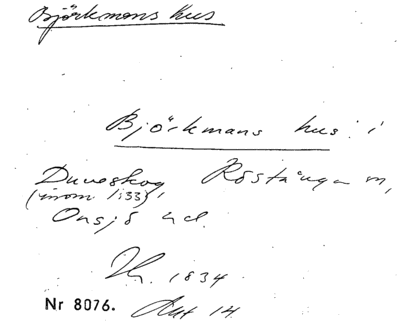 Björkmans hus
Björkmans hus i
Duveskog Röstånga sn,
(inom 1:33),
Onsjö hd.
1834
Nr 8076. Akt 14.